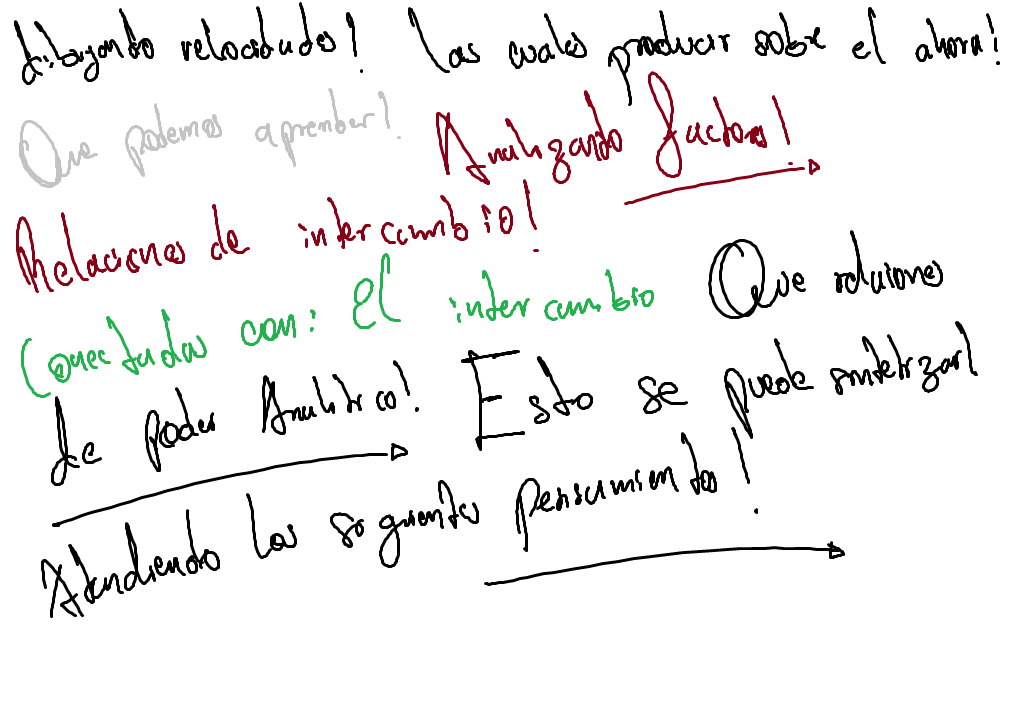 dibujando velocidades! las cuales producir sobre el ahora!
Que podemos aprender! Analizando factores!
Relaciones de intercambio!
Conectadas con: El intercambio Que relaciones
de poder Analitico! Esto se puede sintetizar!
Atendiendo los siguientes pensamientos!